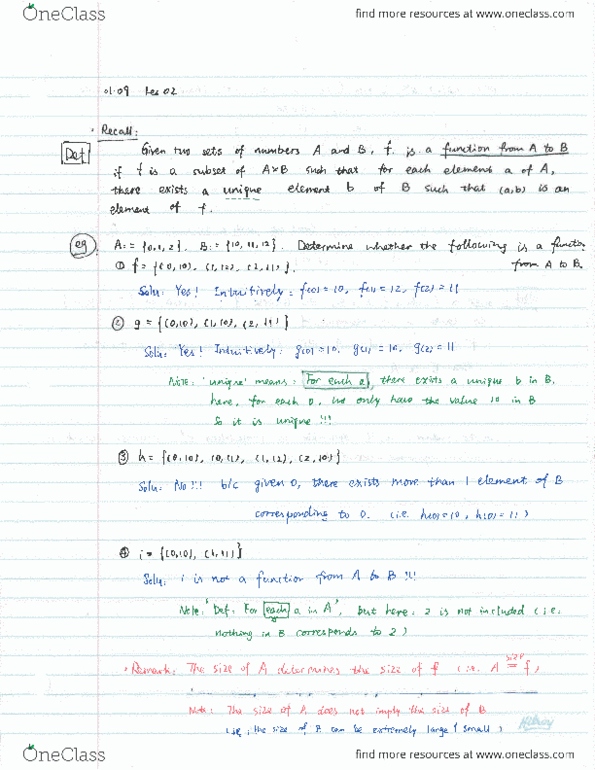 OneClass
find more resources at www.oneclass.com
01.09 Lec 02
• Recall:
Def Given two sets of numbers A and B, f is a function from A to B
if f is a subset of A×B such that for each element a of A,
there exists a unique element b of B such that (a,b) is an
element of f.
eg A:= {0,1,2}. B:= {10,11,12}. Determine whether the following is a function
from A to B.
① f = {(0,10), (1,12), (2,11)}.
Solu: Yes! Intuitively: f(0)=10, f(1)=12, f(2)=11
② g = {(0,10), (1,10), (2,11)}
Solu: Yes! Intuitively: g(0)=10. g(1)=10. g(2)=11
Note: 'unique' means: For each a, there exists a unique b in B.
here, for each 0, we only have the value 10 in B
So it is unique !!!
③ h = {(0,10), (0,11), (1,12), (2,10)}
Solu: No!!! b/c given 0, there exists more than 1 element of B
corresponding to 0. (i.e. h(0)=10, h(0)=11)
④ i = {(0,10), (1,11)}
Solu: i is not a function from A to B !!!
Note: 'Def: For each a in A', but here, 2 is not included (i.e.
nothing in B corresponds to 2)
• Remark: The size of A determines the size of f (i.e. A size= f)
Note: The size of A does not imply the size of B
i.e. the size of A can be extremely large (small)
OneClass
find more resources at www.oneclass.com